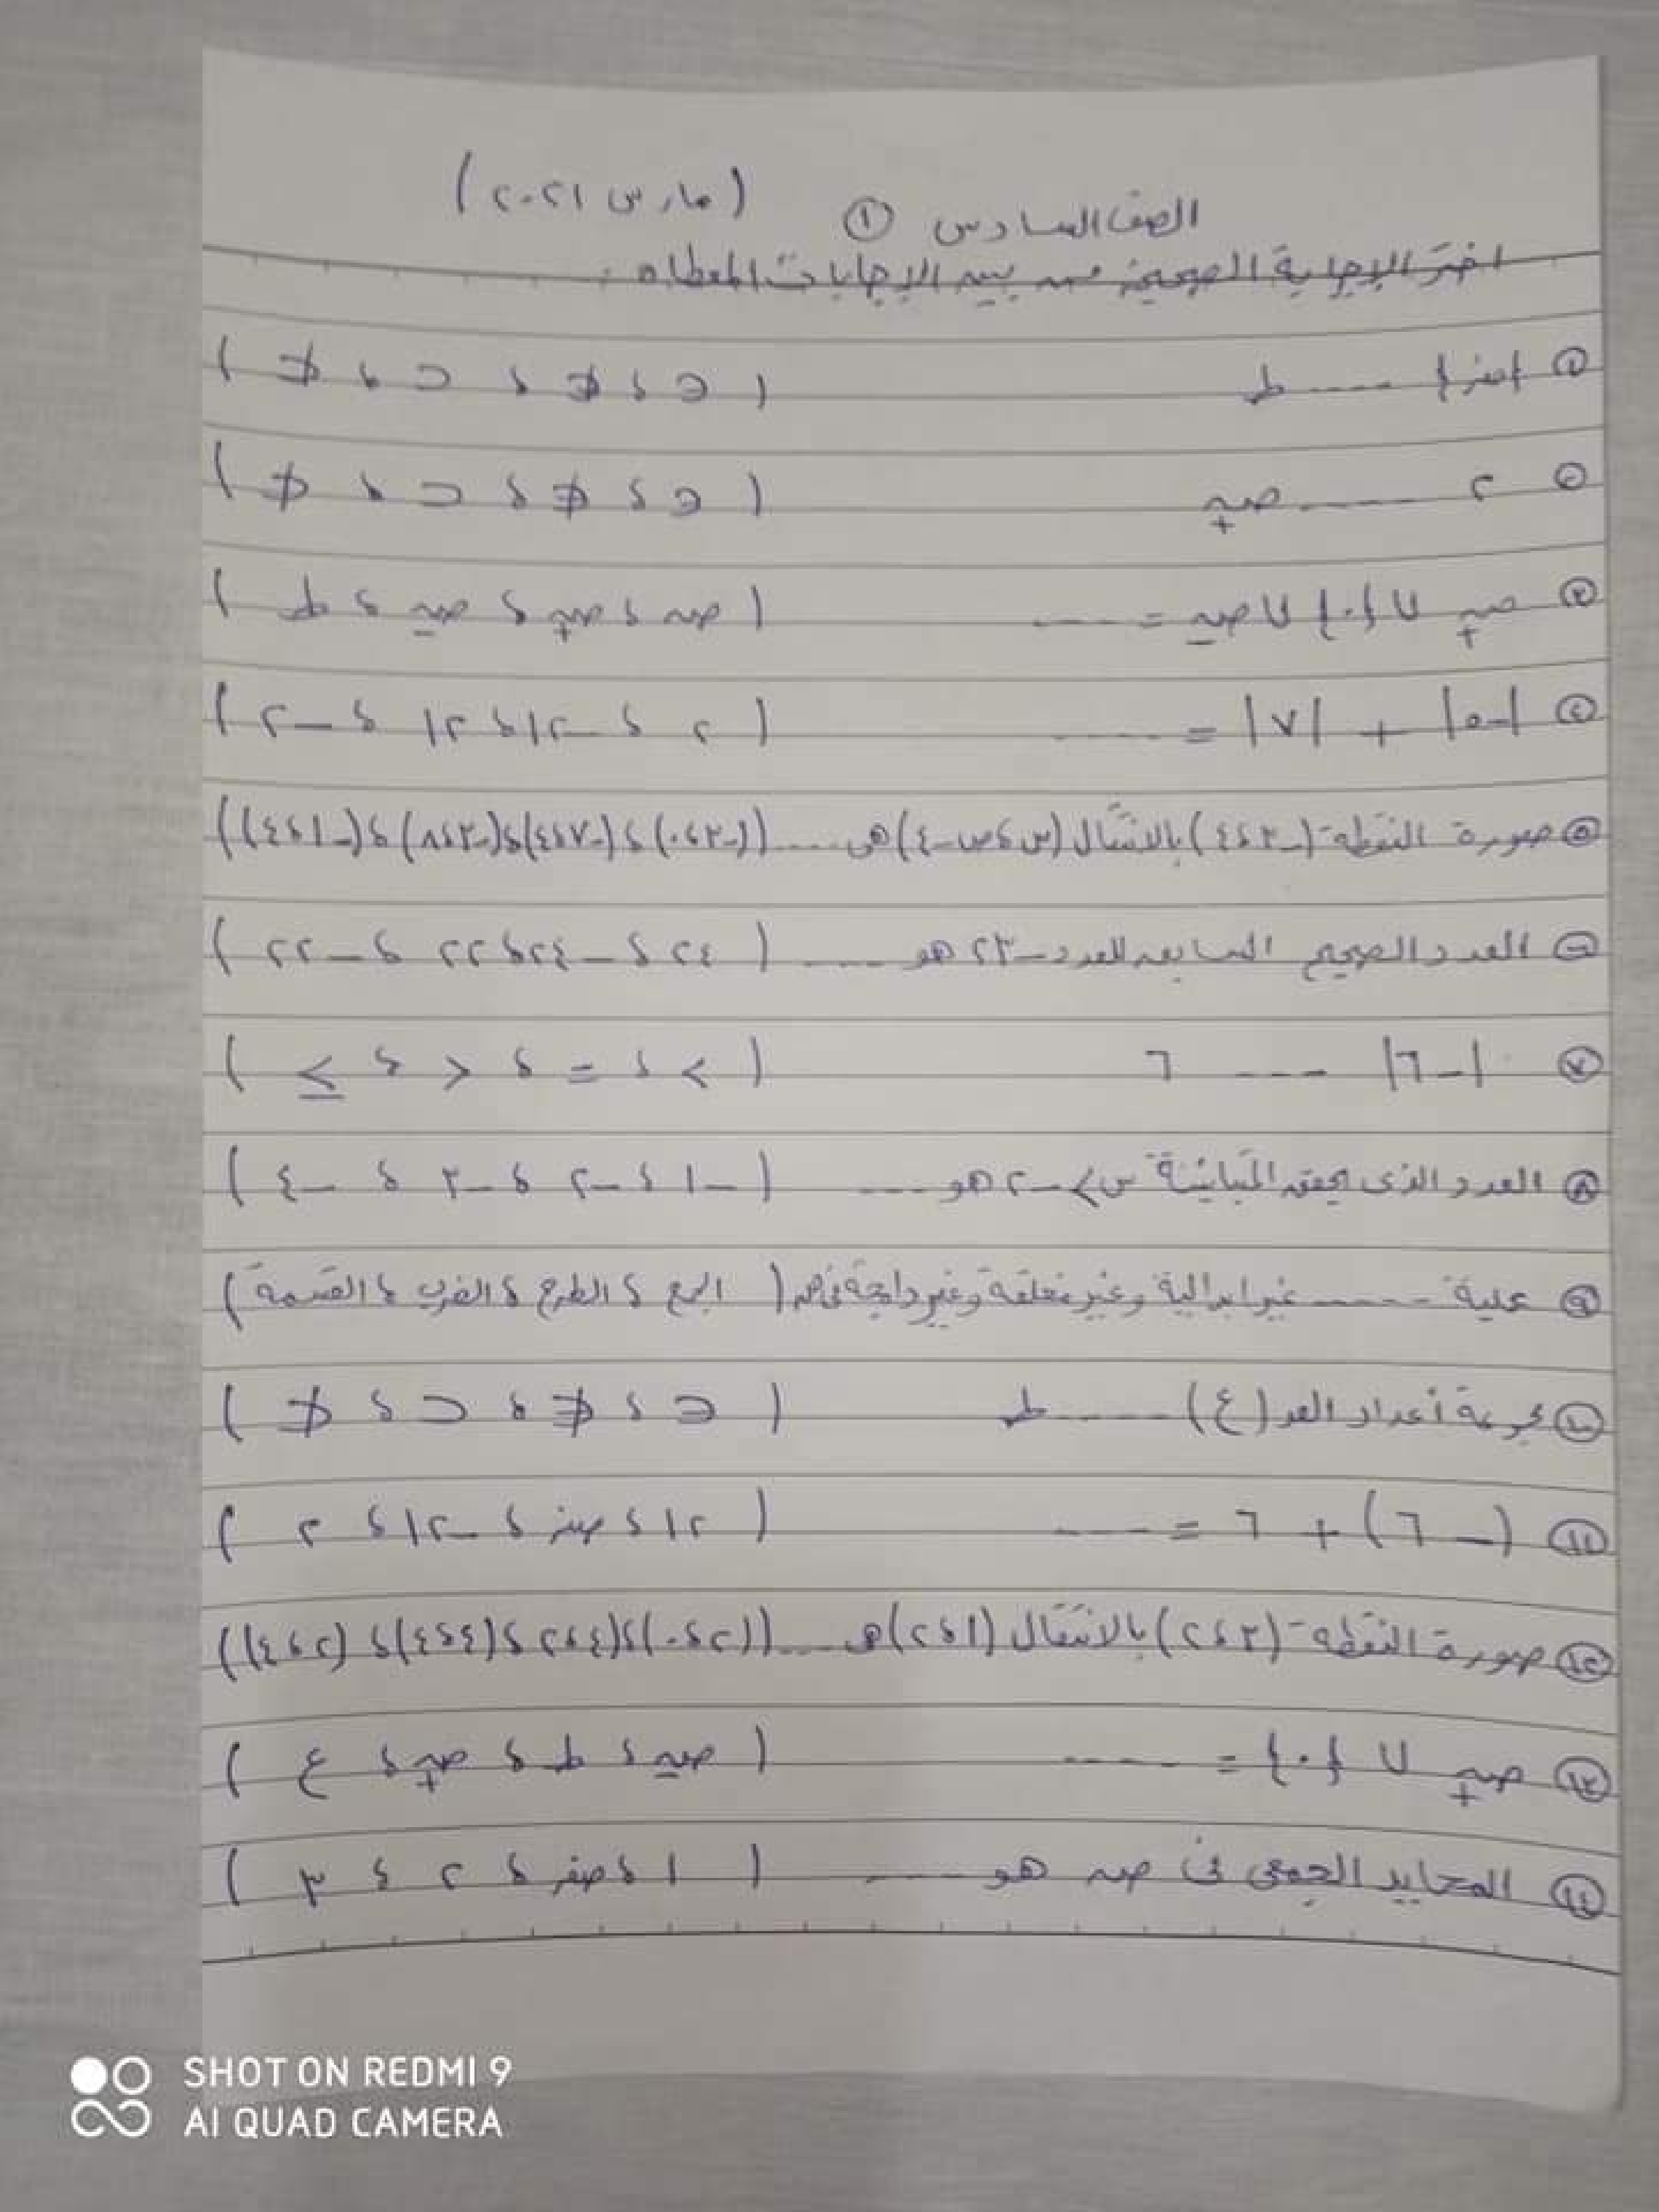 الصف السادس ① (مارس ٢٠٢١)
اختر الإجابة الصحيحة من بين الإجابات المعطاه :
① {صفر} ---- ط ( ∈ ، ∉ ، ⊂ ، ⊄ )
② ٢ ---- ص+ ( ∈ ، ∉ ، ⊂ ، ⊄ )
③ ص+ ∪ {٠} ∪ ص- = ---- ( ص ، ص+ ، ص- ، ط )
④ |-٥| + |٧| = ---- ( ٢ ، -١٢ ، ١٢ ، -٢ )
⑤ صورة النقطة (-٣ ، ٤) بالانتقال (س ، ص - ٤) هى .... ((-٣ ، ٠) ، (-٧ ، ٤) ، (-٣ ، ٨) ، (-١ ، ٤))
⑥ العدد الصحيح السابق للعدد -٢٣ هو .... ( ٢٤ ، -٢٤ ، ٢٢ ، -٢٢ )
⑦ |-٦| --- ٦ ( > ، = ، < ، ≥ )
⑧ العدد الذى يحقق المتباينة س > -٢ هو ---- ( -١ ، -٢ ، -٣ ، -٤ )
⑨ عملية ---- غير ابدالية وغير مغلقة وغير دامجة فى ص ( الجمع ، الطرح ، الضرب ، القسمة )
⑩ مجموعة أعداد العد (ع) ---- ط ( ∈ ، ∉ ، ⊂ ، ⊄ )
⑪ (-٦) + ٦ = ---- ( ١٢ ، صفر ، -١٢ ، ٢ )
⑫ صورة النقطة (٣ ، ٢) بالانتقال (١ ، ٢) هى .... ((٢ ، ٠) ، (٤ ، ٢) ، (٤ ، ٤) ، (٢ ، ٤))
⑬ ص+ ∪ {٠} = ---- ( ص- ، ط ، ص+ ، ع )
⑭ المحايد الجمعى فى ص هو ---- ( ١ ، صفر ، ٢ ، ٣ )
SHOT ON REDMI 9
AI QUAD CAMERA